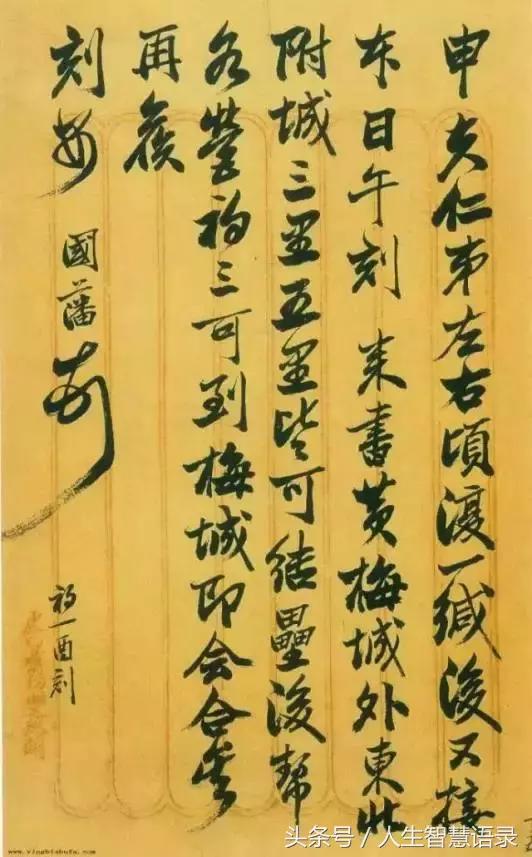 申夫仁弟左右頃復一緘後又接
本日午刻 来書黄梅城外東北
附城三里五里皆可結壘後幫
各營初三可到梅城即会合矣
再候
刻安 國藩
初一酉刻
头条号／人生智慧语录
www.yingbishufa.com